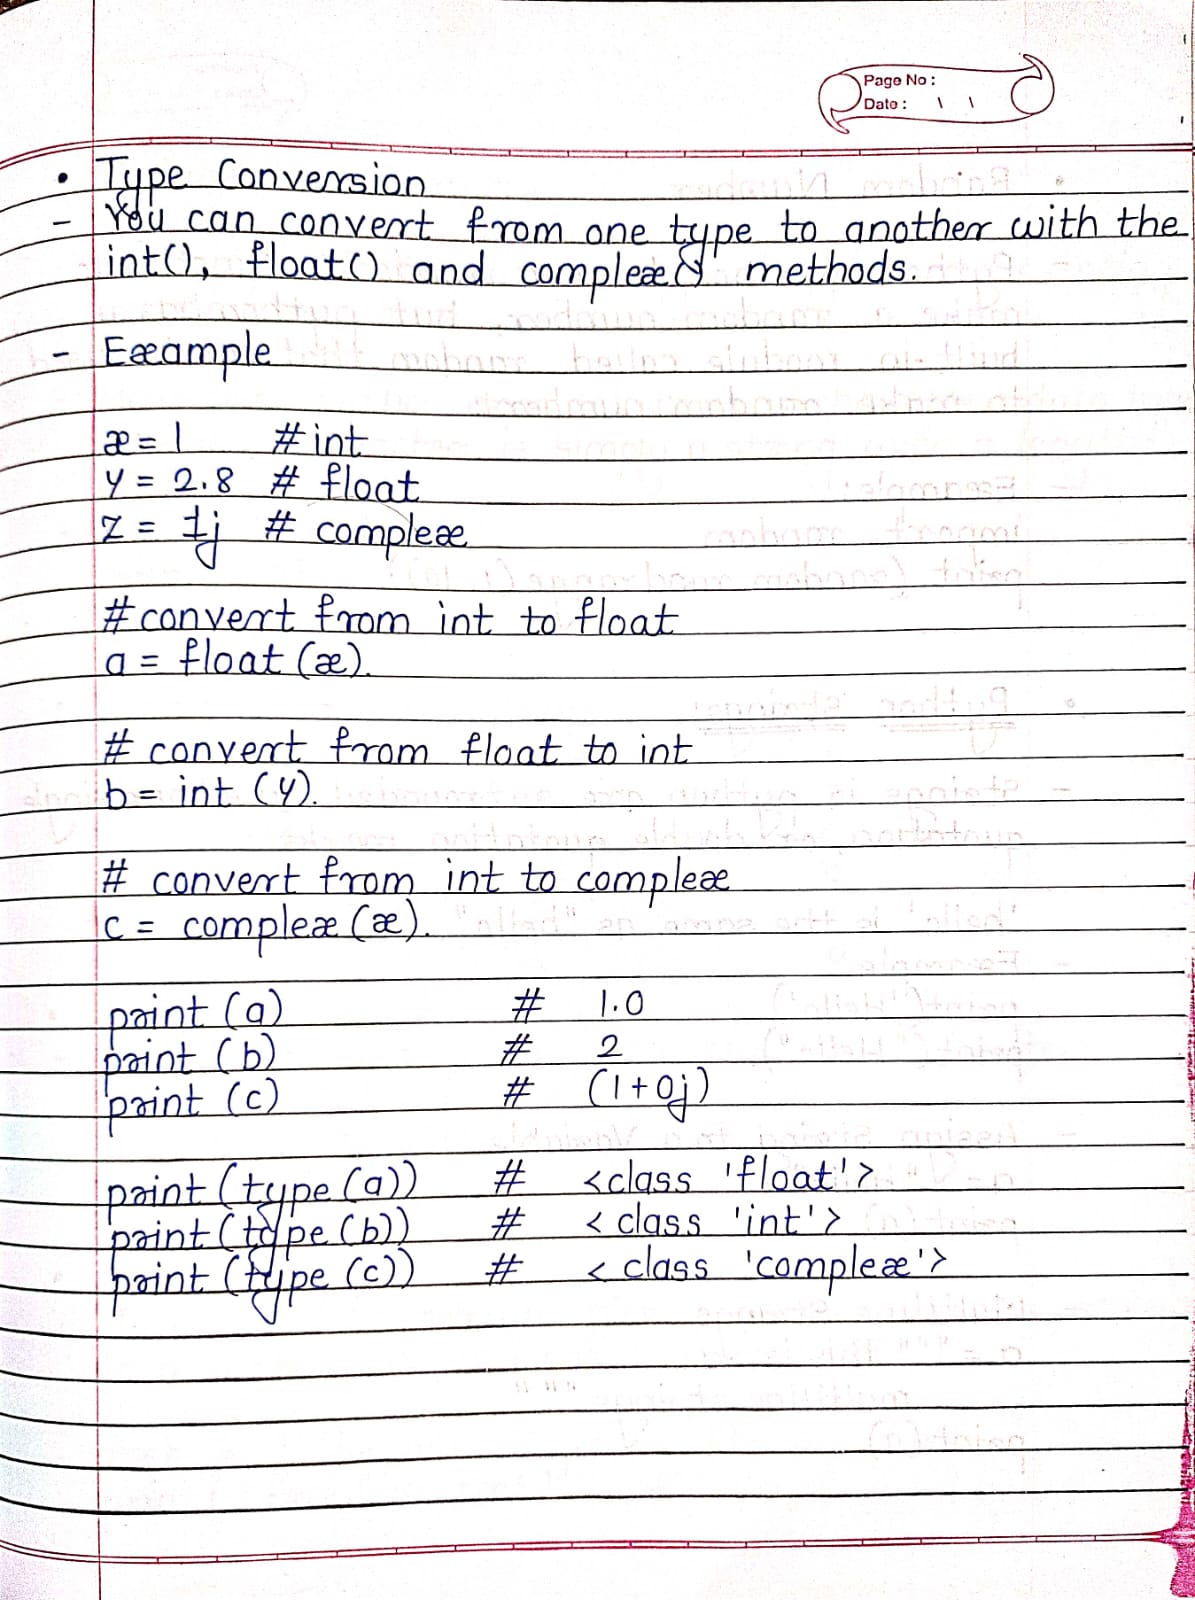 Page No :
Date : \ \
• Type Conversion
- You can convert from one type to another with the
int(), float() and complex() methods.
- Example
x = 1 # int
y = 2.8 # float
z = 1j # complex
# convert from int to float
a = float (x).
# convert from float to int
b = int (y).
# convert from int to complex
c = complex (x).
print (a) # 1.0
print (b) # 2
print (c) # (1+0j)
print (type (a)) # <class 'float'>
print (type (b)) # <class 'int'>
print (type (c)) # <class 'complex'>